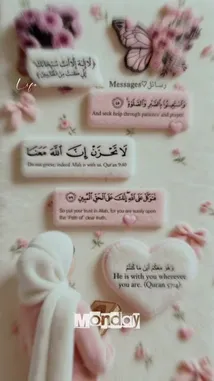 لَا إِلَٰهَ إِلَّا أَنْتَ سُبْحَانَكَ
إِنِّي كُنْتُ مِنَ الظَّالِمِينَ
Messages♡رسائل
وَاسْتَعِينُوا بِالصَّبْرِ وَالصَّلَاةِ
And seek help through patience and prayer
لَا تَحْزَنْ إِنَّ اللَّهَ مَعَنَا
Do not grieve; indeed Allah is with us. Quran 9:40
فَتَوَكَّلْ عَلَى اللَّهِ إِنَّكَ عَلَى الْحَقِّ الْمُبِينِ
So put your trust in Allah, for you are surely upon
the Path of clear truth.
وَهُوَ مَعَكُمْ أَيْنَ مَا كُنْتُمْ
He is with you wherever
you are. (Quran 57:4)
Monday